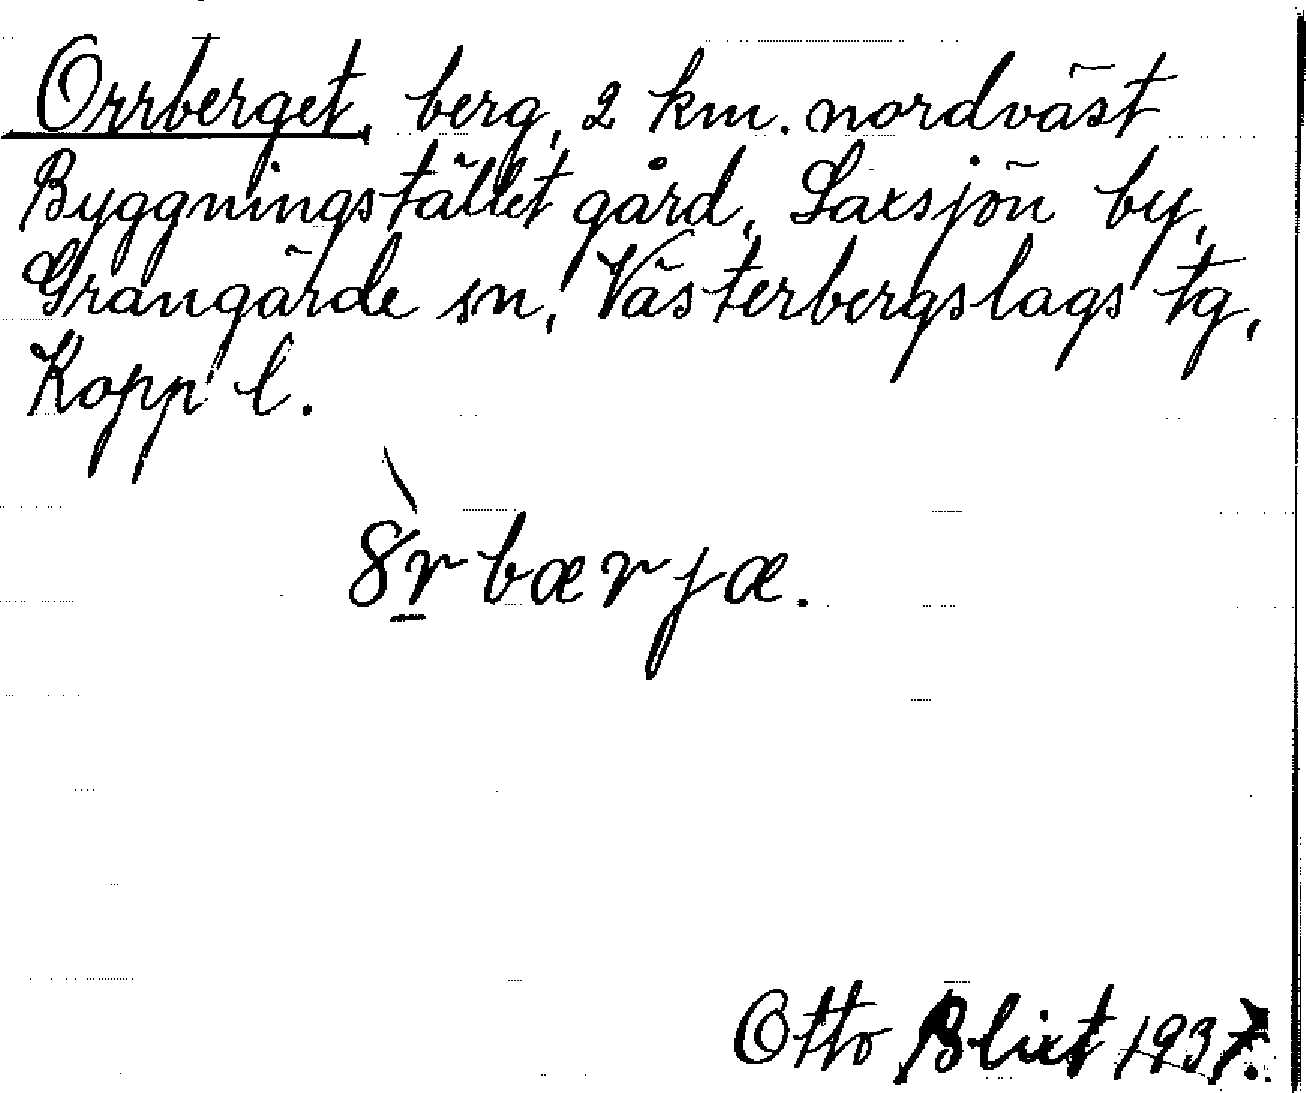 Orrberget, berg, 2 km. nordväst
Byggningstället gård, Saxsjön by,
Grangärde sn, Västerbergslags tg,
Kopp. l.
8̀r̲bærjæ.
Otto Blixt 1937.